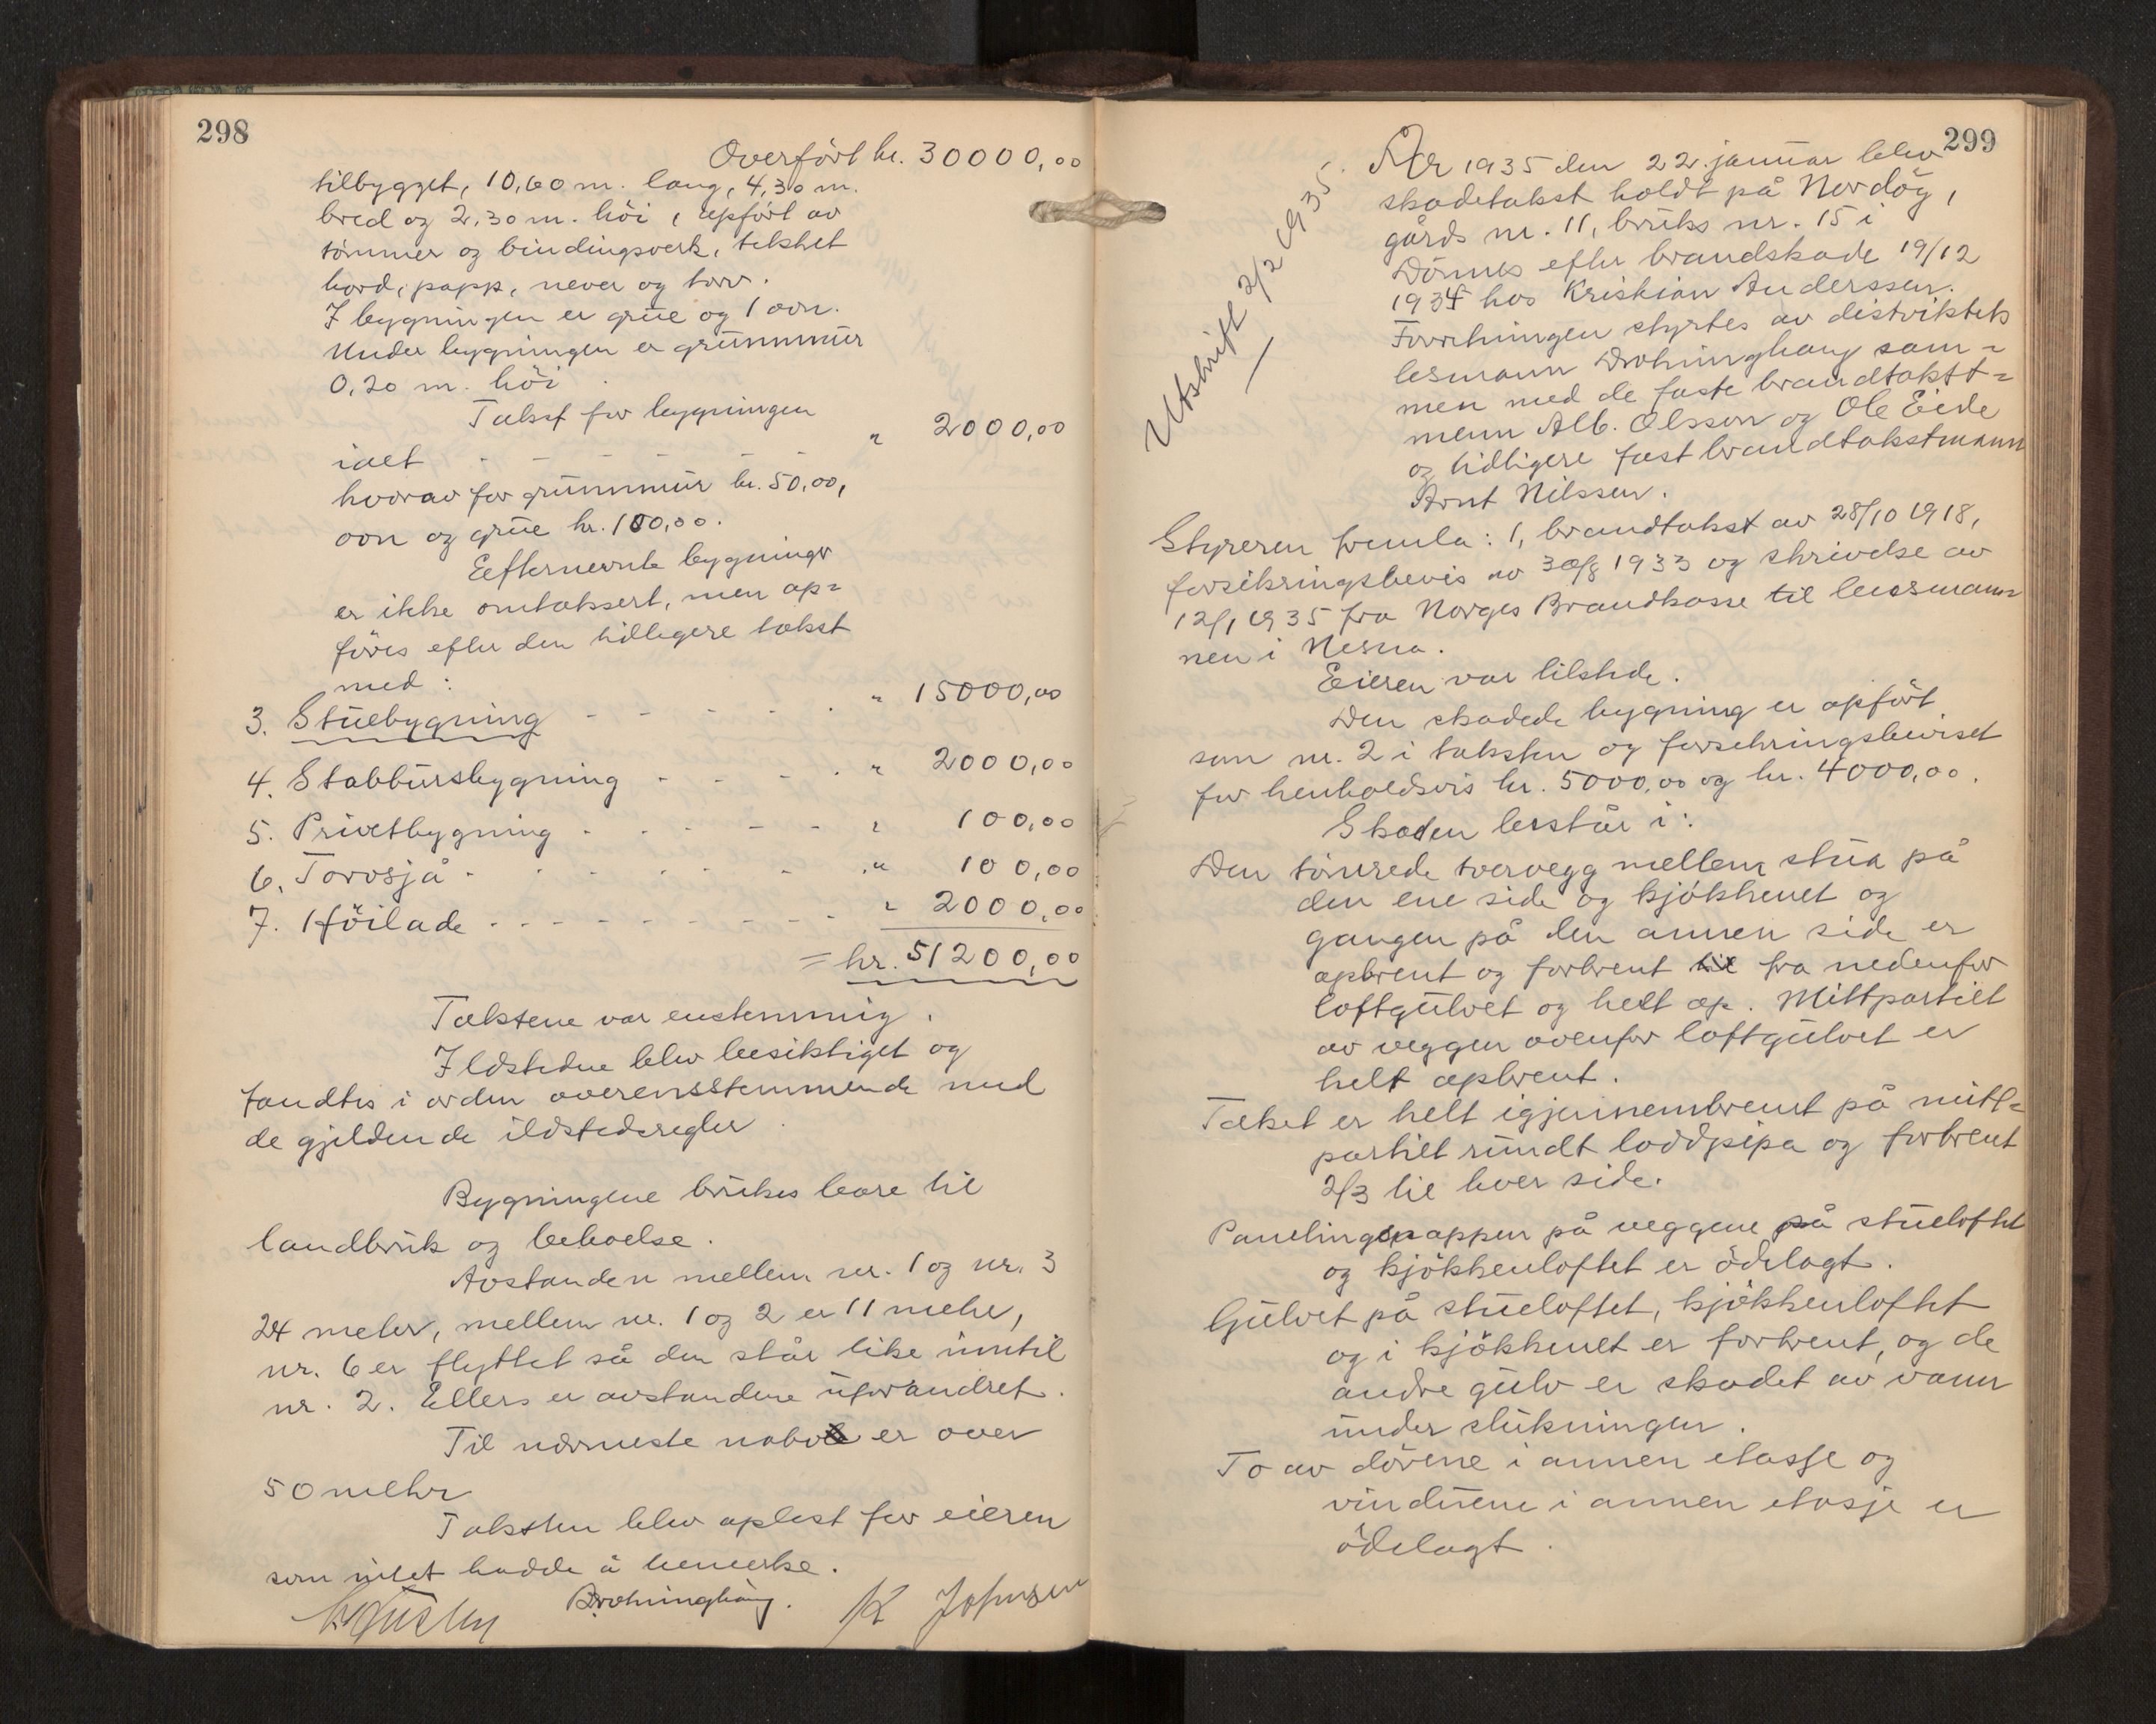 298
Overført kr. 30000,00
tilbygget, 10,60 m. lang, 4,30 m.
bred og 2,30 m. höi, opfört av
tömmer og bindingsverk, tekket
bord, papp, never og torv.
I bygningen er grue og 1 ovn.
Under bygningen er grunnmur
0,20 m. höi.
Takst for bygningen
ialt - - - - - " 2000,00
hvorav for grunnmur kr. 50,00,
ovn og grue kr. 100,00.
Efternevnte bygninger
er ikke omtaksert, men op=
föres efter den tidligere takst
med:
3. Stuebygning - - - - - " 15000,00
4. Stabbursbygning - - - - " 2000,00
5. Privetbygning - - - - - " 100,00
6. Torvsjå - - - - - - " 100,00
7. Höilade - - - - - - - - " 2000,00
= kr. 51200,00
Takstene var enstemmig.
Ildstedene blev besiktiget og
fandtes i orden overensstemmende med
de gjeldende ildstedsregler.
Bygningene brukes bare til
landbruk og beboelse.
Avstanden mellem nr. 1 og nr. 3
24 meter, mellem nr. 1 og 2 er 11 meter,
nr. 6 er flyttet så den står like inntil
nr. 2. Ellers er avstandene uforandret.
Til nærmeste nabo er over
50 meter
Taksten blev oplest for eieren
som intet hadde å bemerke.
Drohninghaug. K Johnsen
299
Utskrift 2/2 1935.
År 1935 den 22. januar blev
skadetakst holdt på Nordög,
gårds nr. 11, bruks nr. 15 i
Dönnes efter brandskade 19/12
1934 hos Kristian Anderssen.
Forretningen styrtes av distriktets
lensmann Drohninghaug sam=
men med de faste brandtakst=
menn Alb. Olsson og Ole Eide
og tidligere fast brandtakstmann
Arnt Nilssen.
Styreren fremla: 1, brandtakst av 28/10 1918,
forsikringsbevis av 30/8 1933 og skrivelse av
12/1 1935 fra Norges Brandkasse til lensman=
nen i Nesna.
Eieren var tilstede.
Den skadede bygning er opfört
som nr. 2 i taksten og forsikringsbeviset
for henholdsvis kr. 5000,00 og kr. 4000,00.
Skaden består i:
Den tömrede tvervegg mellem stua på
den ene side og kjökkenet og
gangen på den annen side er
opbrent og forbrent til fra nedenfor
loftgulvet og helt op. Mittpartiet
av veggen ovenfor loftgulvet er
helt opbrent.
Taket er helt igjennembrent på mitt=
partiet rundt loddpipa og forbrent
2/3 til hver side.
Panelingspappen på veggene på stueloftet
og kjökkenloftet er ödelagt.
Gulvet på stueloftet, kjökkenloftet
og i kjökkenet er forbrent, og de
andre gulv er skadet av vann
under slukningen.
To av dörene i annen etasje og
vinduene i annen etasje er
ödelagt.